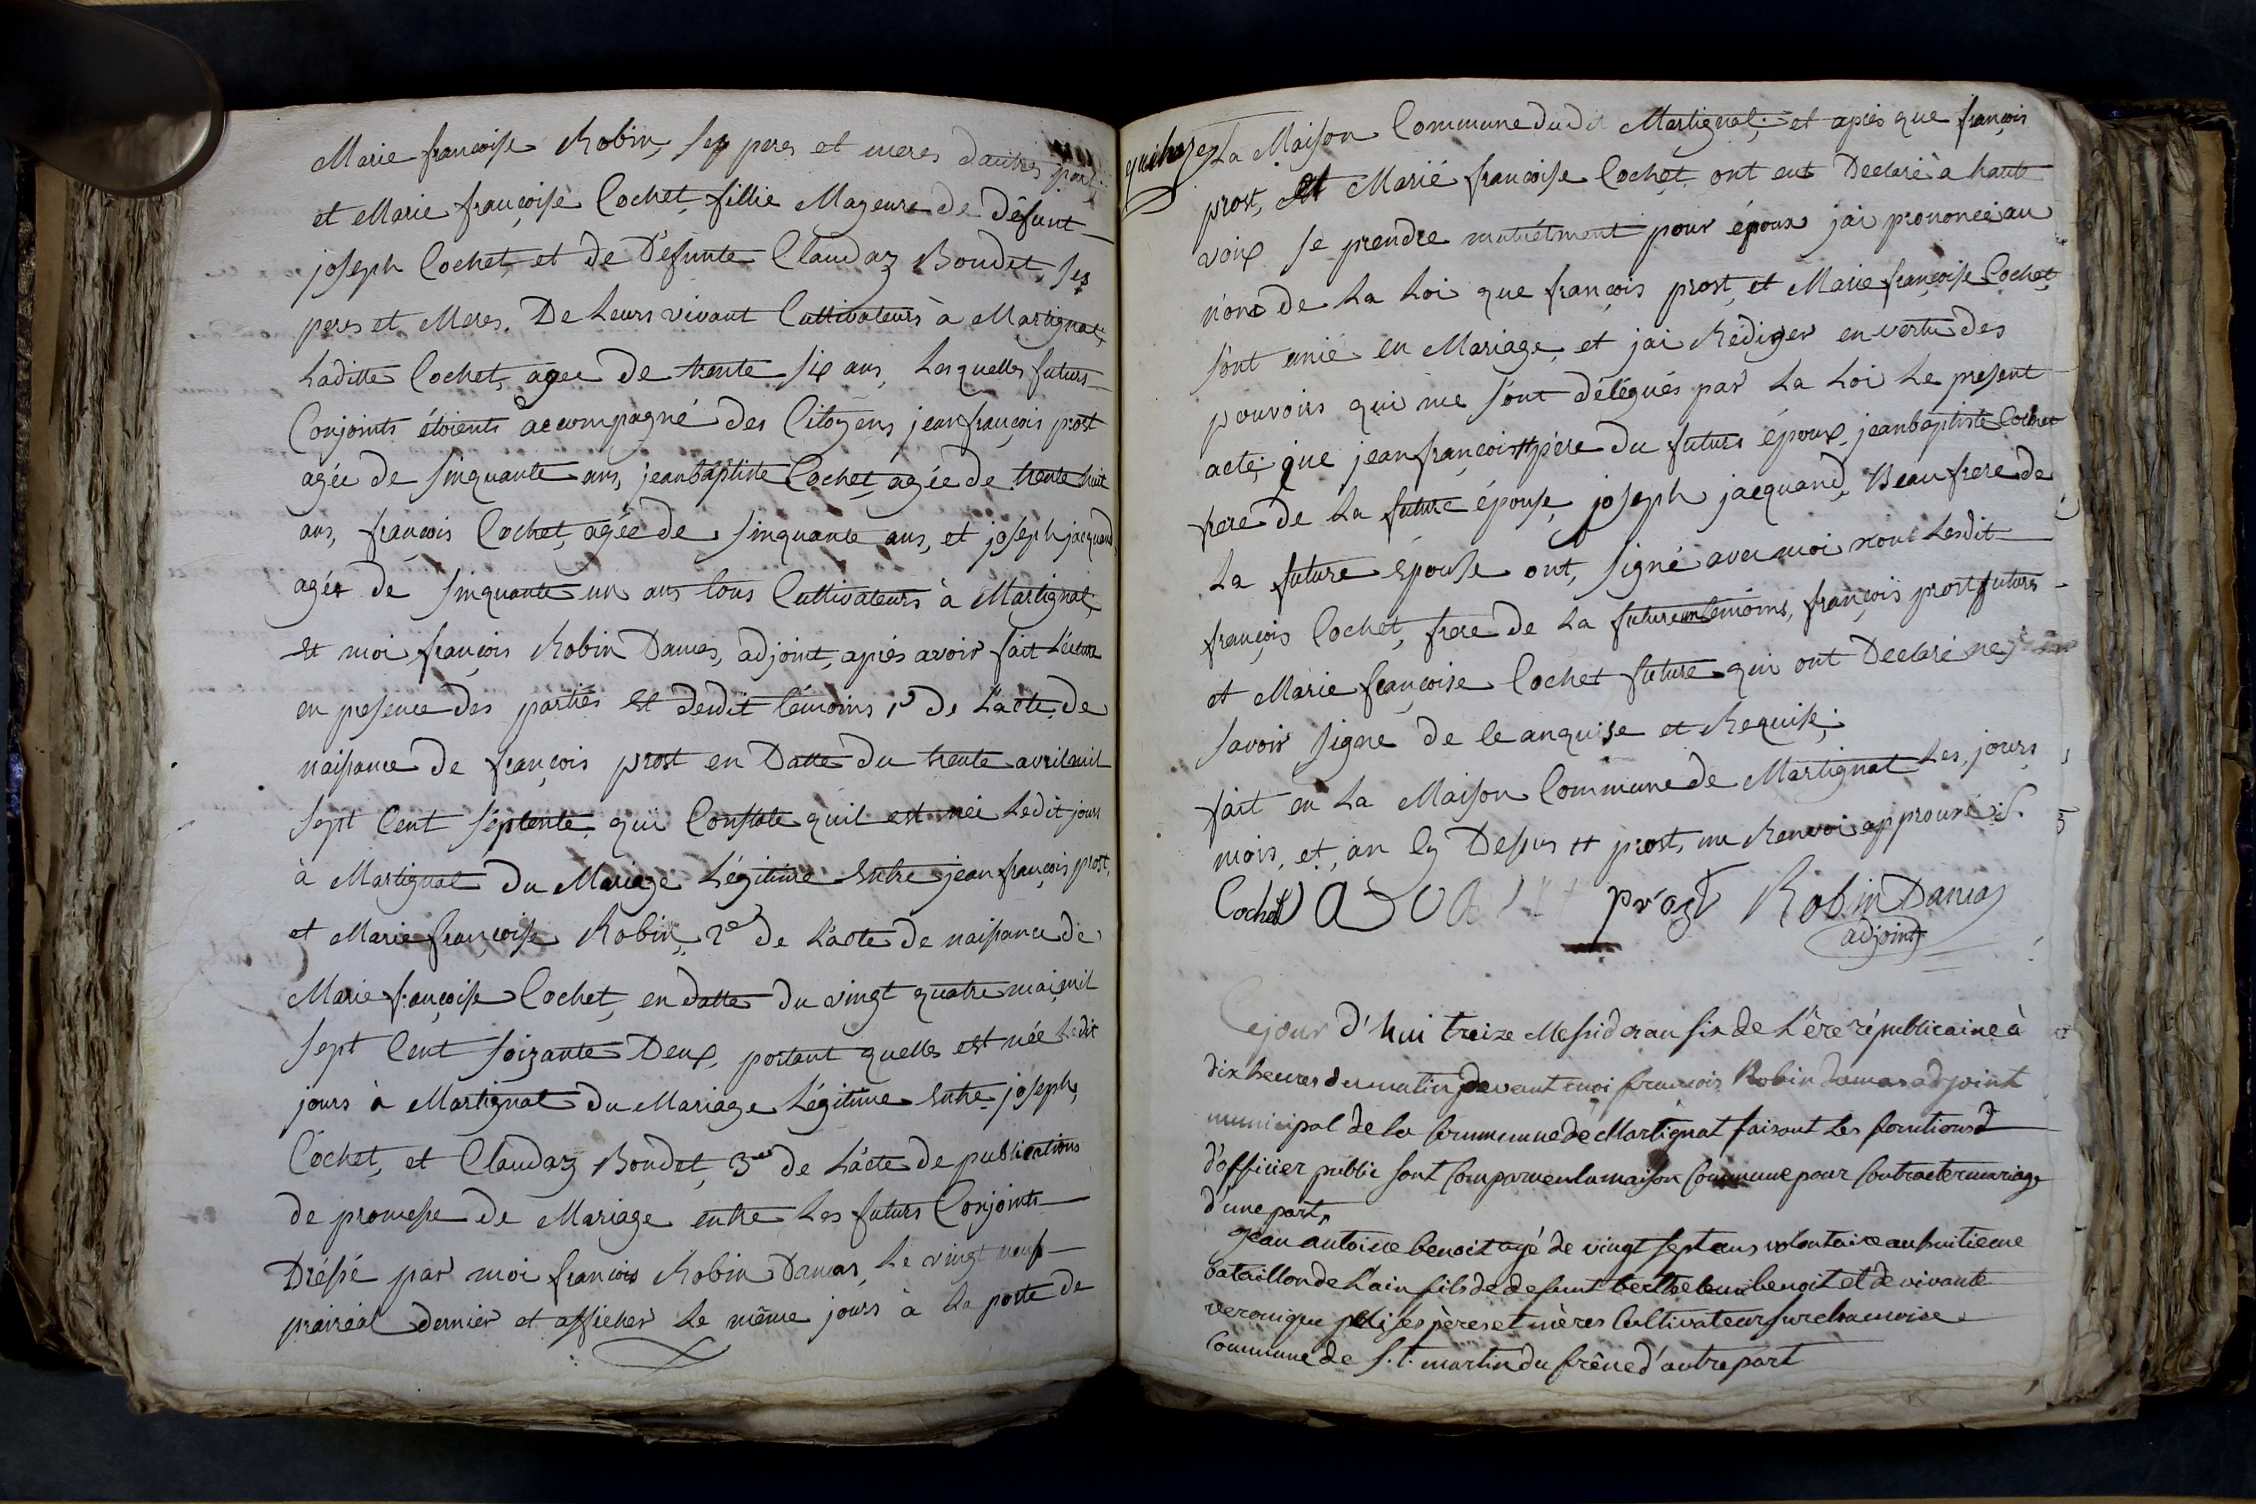 Marie francoise Robin, ses peres et meres dautres part,
et Marie françoise Cochet, fillie Mageure de défunt
joseph Cochet, et de Défunte Claudaz Boudet, ses
peres et Meres. De Leurs vivant Cultivateurs à Martignat,
Laditte Cochet, agee de trente six ans, Lesquelles futurs
Conjoints étoients accompagné des Citoyens jean françois prost
agée de sinquante ans, jean baptiste Cochet, agée de trente huit
ans, françois Cochet, agée de sinquante ans, et joseph jacquand,
agée de sinquante un ans tous Cultivateurs à Martignat,
Et moi françois Robin Damas, adjoint, après avoir fait Lecture
en presence des parties et desdit témoins 1º De Lacte de
naissance de françois prost en Datte du trente avril mil
sept Cent séptente qui Constate quil est née Ledit jours
à Martignat du Mariage Légitime Entre jean françois prost,
et Marie françoise Robin, 2º de Lacte de naissance de
Marie françoise Cochet, en datte du vingt quatre mai mil
sept Cent soixante Deux, portant quelles est née Ledit
jours à Martignat du Mariage Légitime Entre joseph,
Cochet, et Claudaz Boudet, 3º de Lacte de publications
de promesse de Mariage entre Les futurs Conjoints
Dréssé par moi françois Robin Damas, Le vingt neuf
prairéal dernier et afficher Le même jours à La porte de
quinze
La Maison Commune dudit Martignat, et après que françois
prost, Et Marié françoise Cochet, ont eut Declaré à haute
voix se prendre mutuélment pour époux jai prononcé au
nom de La Loi que françois prost, et Marie françoise Cochet,
sont unié en Mariage, et jai Rédiger en vertu des
pouvoirs qui me sont délégués par La Loi Le present
acte, que jean françois # père du futurs époux, jean baptiste Cochet
frere de La future épouse, joseph jacquand, Beau frere de
La future Epouse ont, signé avec moi non Lesdit
françois Cochet, frere de La future un témoins, françois prost futurs
et Marie françoise Cochet future qui ont Declaré ne
savoir signe de ce anquise et Requise;
fait en La Maison Commune de Martignat Les, jours
mois, et, an Cy Dessus # prost, un Renvoi approuvé
Cochet prost Robin Damas
adjoint
Ce jour d'hui treize Messidor an six de L'ère républicaine à
dix heures du matin pardevant moi francois Robin damas adjoint
municipal de la Commune de Martignat faisant Les fonctions d
d'officier public sont Comparu en la maison Commune pour Contracter mariage
d'une part,
Jean antoine benoit agé de vingt sept ans volontaire au huitieme
bataillon de L'ain fils de defunt berthelemi benoit et de vivante
veronique ses pères et mères Cultivateur sur chamoise
Commune de s.t. martin du frêne d'autre part